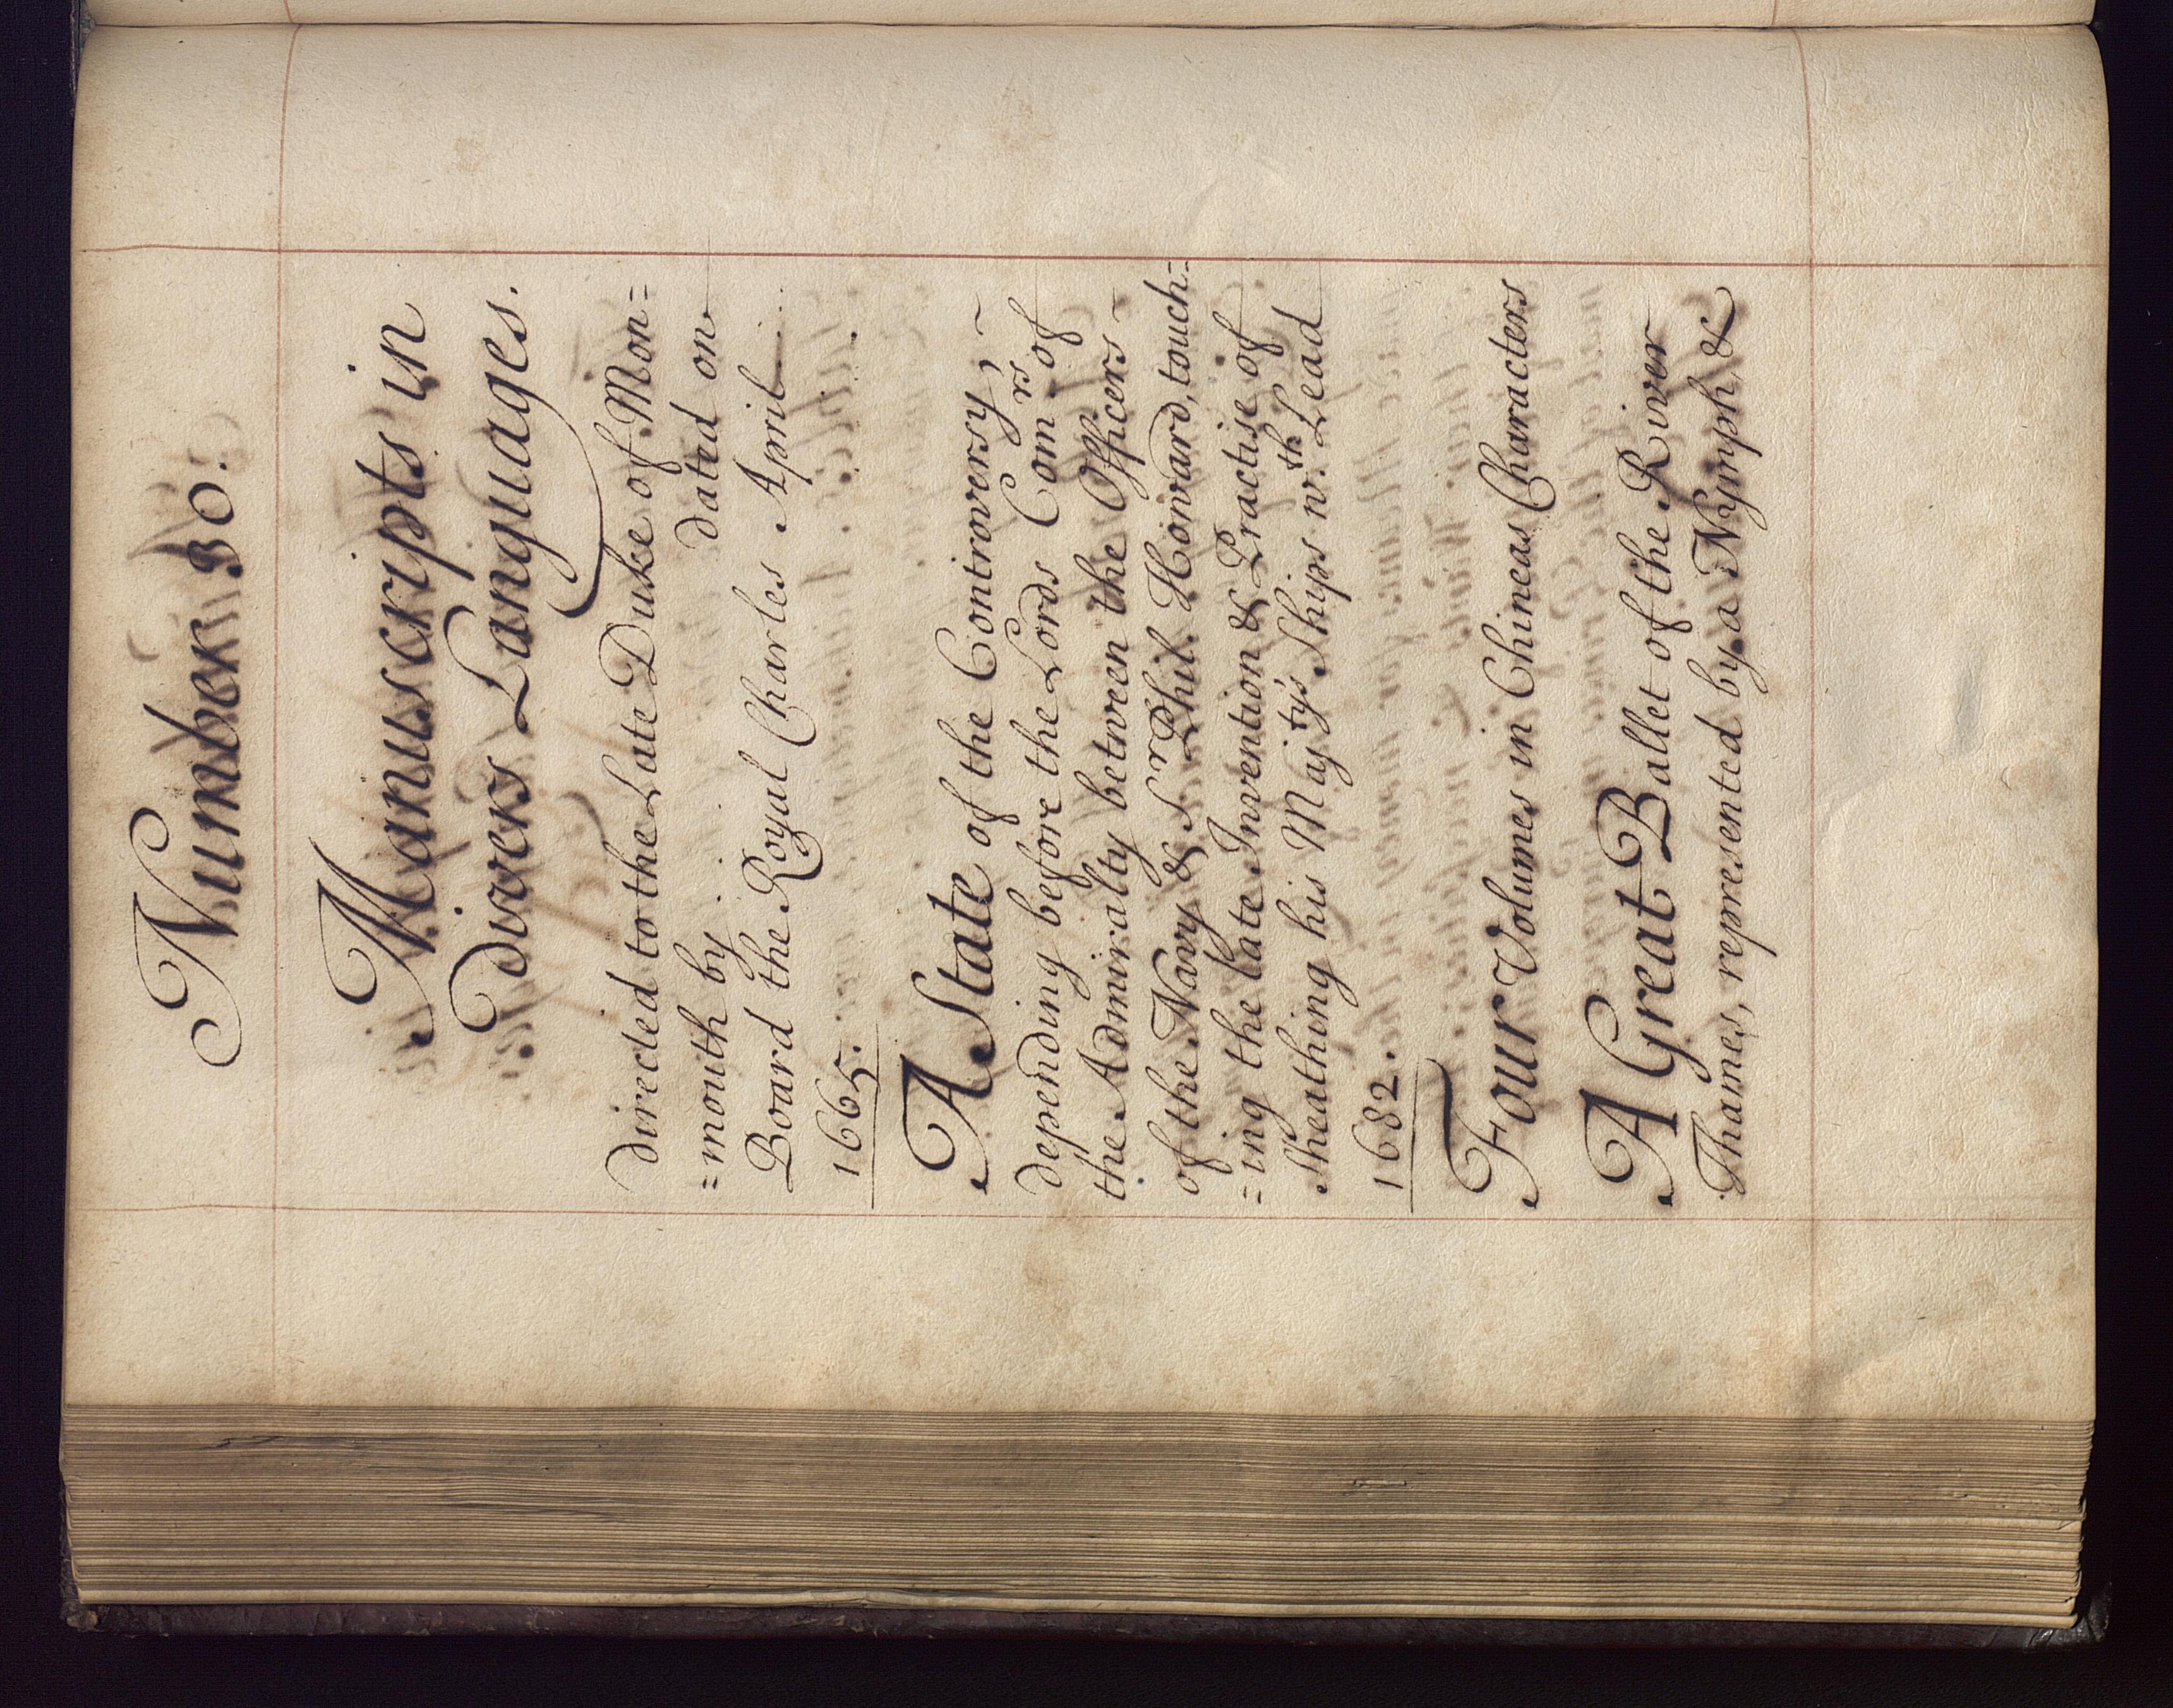 Number 30.
Manuscripts in
Divers Languages.
directed to the Late Duke of Mon=
=mouth by dated on
Board the Royal Charles April
1665.
A State of the Controversy,
depending before the Lords Com.rs of
the Admiralty between the Officers
of the Navy & Sr Phil. Howard, touch=
=ing the late Invention & Practise of
Sheathing his Majty's Ships w.th Lead
1682.
Four Volumes in Chineas Characters
A Great Ballet of the River
Thames, represented by a Nymph &